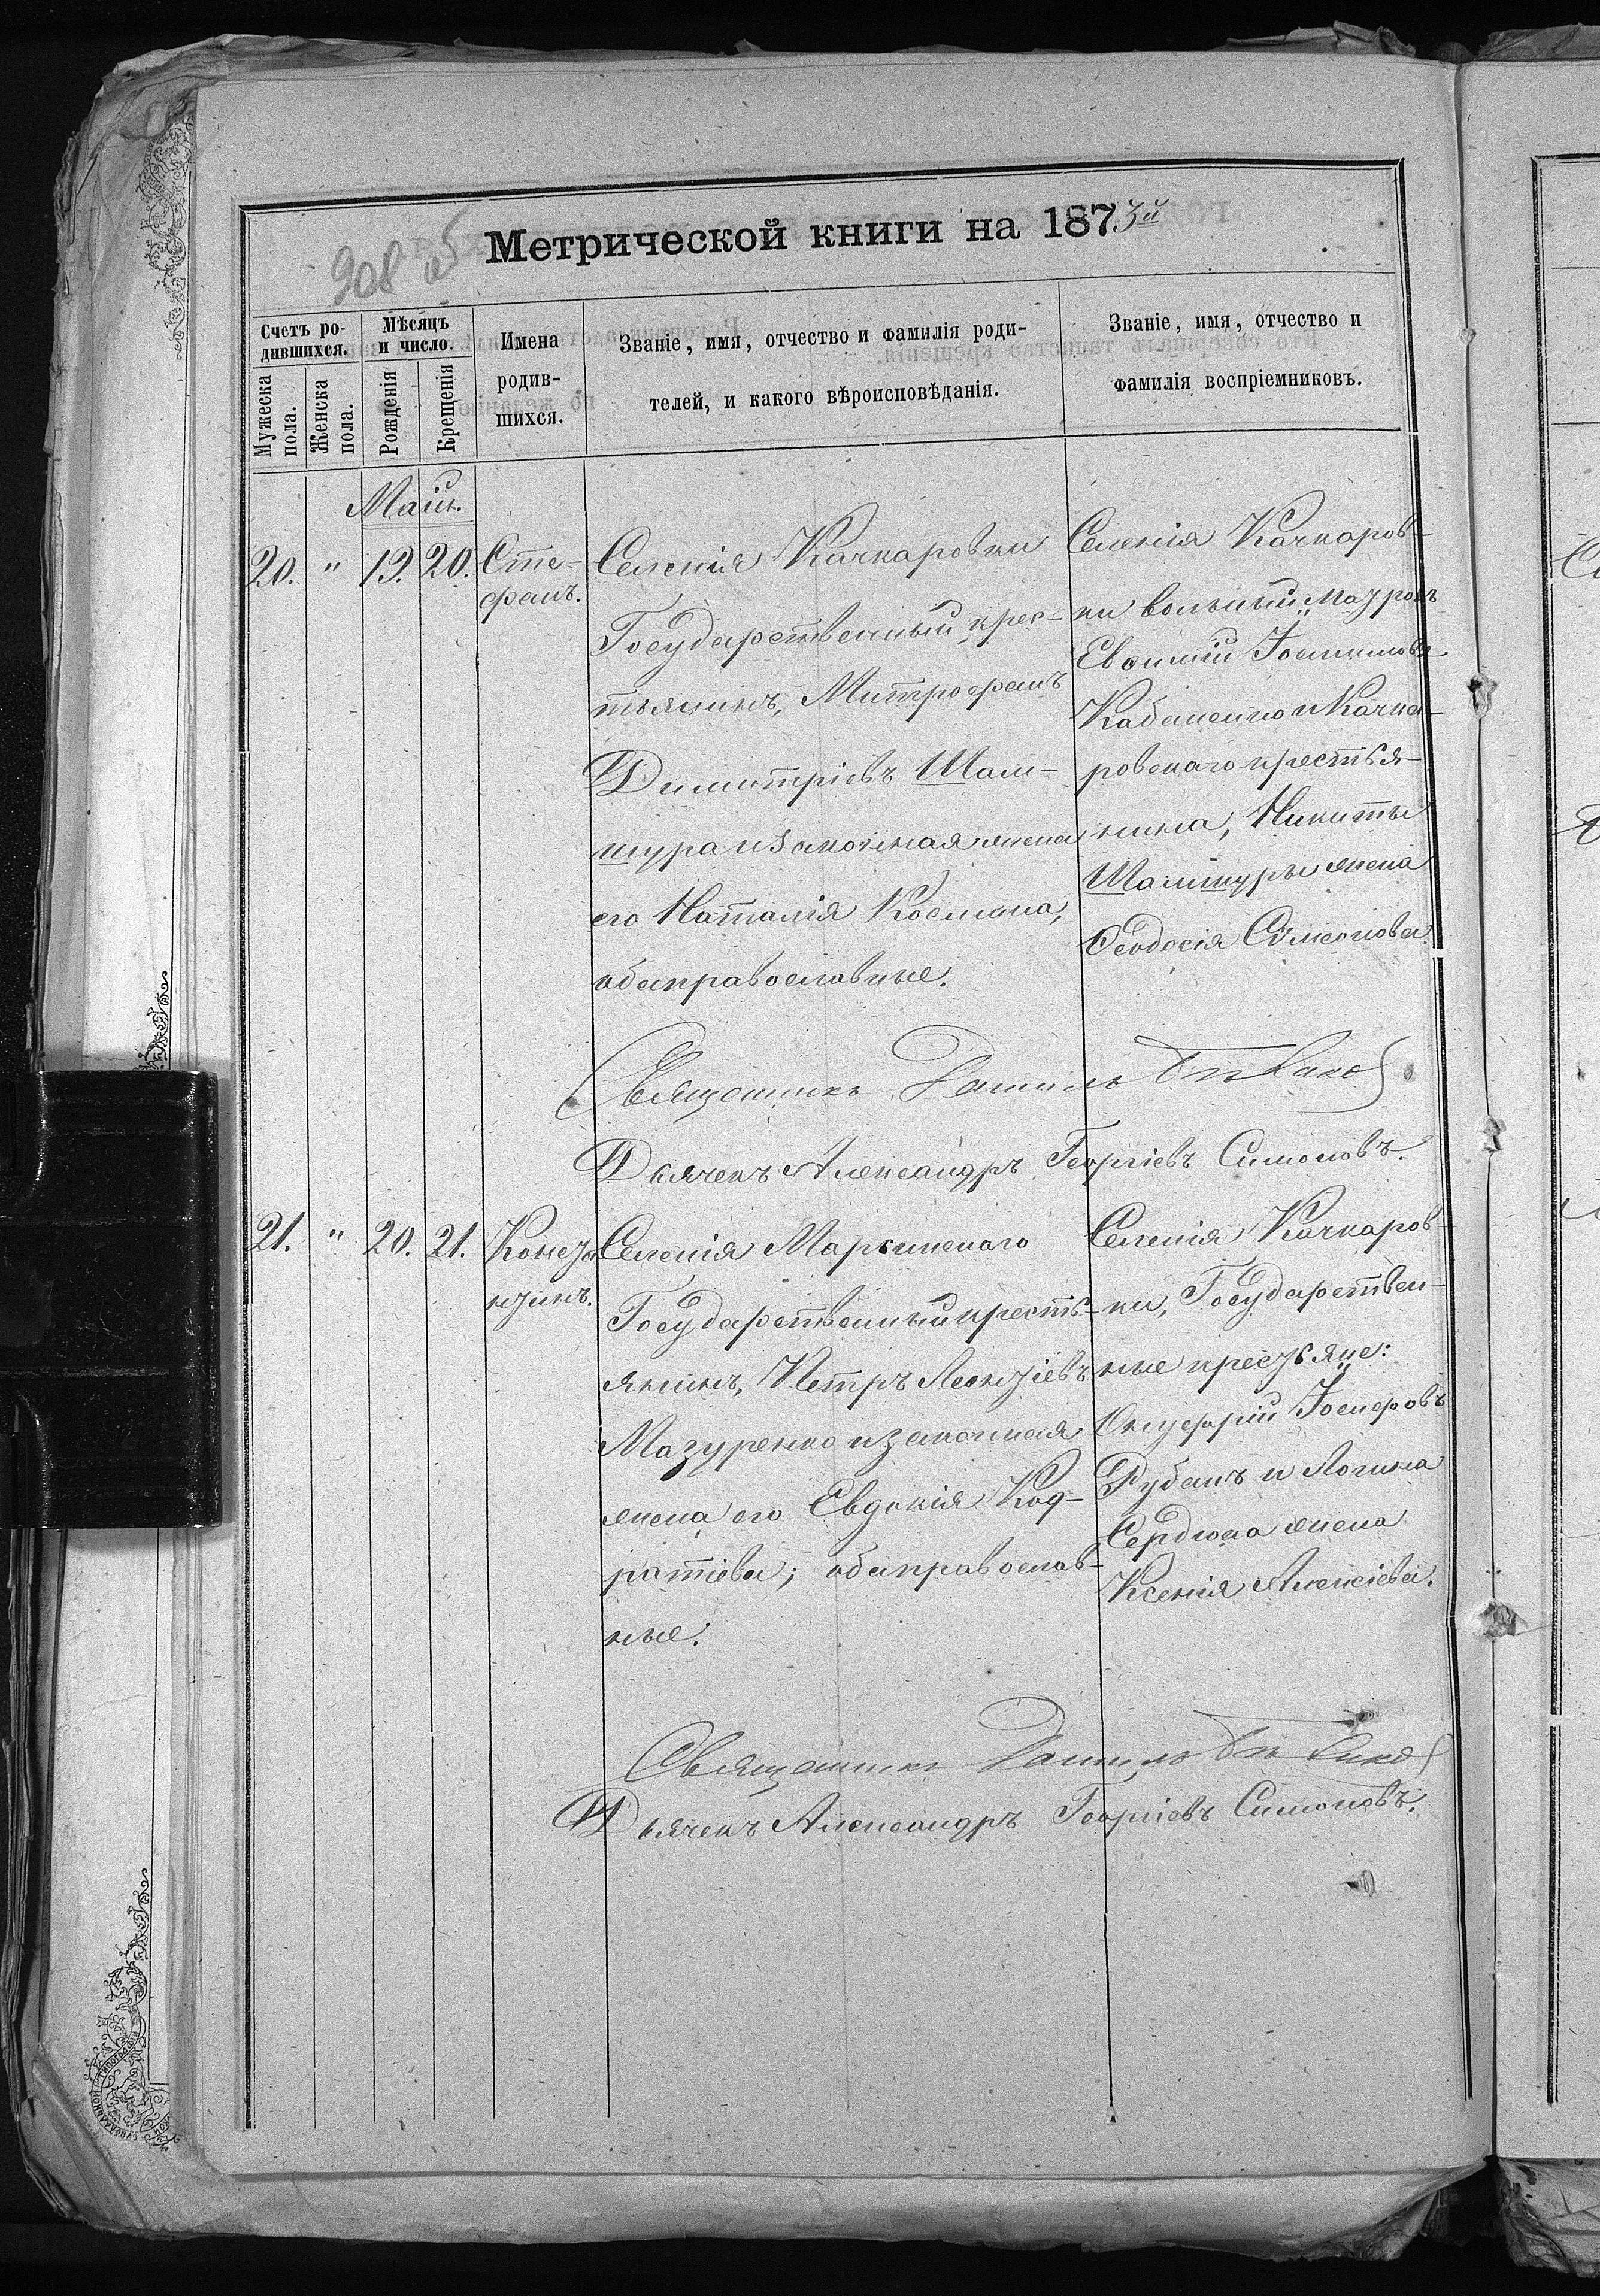 908 об
Метрической книги на 1873й
Счетъ ро-
дившихся.
Мужеска
пола.
Женска
пола.
Мѣсяцъ
и число.
Рожденія
Крещенія
Имена
родив-
шихся.
Званіе, имя, отчество и фамилія роди-
телей, и какого вѣроисповѣданія.
Званіе, имя, отчество и
фамилія воспріемниковъ.
Маій.
20. " 19. 20.
Сте-
фанъ.
Селенія Качкаровки
Государственный крес-
тьянинъ, Митрофанъ
Димитріевъ Шам-
шура и законная жена
его Наталія Космина,
оба православные.
Селенія Качкаров-
ки вольный матрозъ
Евѳимій Іоакимовъ
Кабаненко и Качка-
ровскаго крестья-
нина, Никиты
Шамшуры жена
Ѳеодосія Сѵмеонова.
Священникъ Даниилъ
Дьячекъ Александръ Георгіевъ Симоновъ.
21. " 20. 21.
Конста
нтинъ.
Селенія Марьинскаго
Государственный кресть-
янинъ, Петръ Леонтіевъ
Мазуренко и законная
жена его Евдокія Код-
ратіева; оба православ-
ные.
Селенія Качкаров-
ки, Государствен-
ные крестьяне:
Онуфрій Іосифовъ
Рубанъ и Логина
Сердюка жена
Ксенія Алексіева.
Священникъ Даниилъ
Дьячекъ Александръ Георгіевъ Симоновъ.